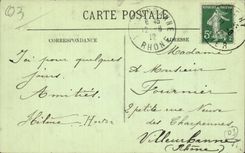 CARTE POSTALE
CORRESPONDANCE
ADRESSE
RHONE
5
Ici pour quelques
jours.
Amitiés
Madame
A Monsieur
Fournier
2 petite rue Neuve
des Charpennes
Villeurbanne
Rhône